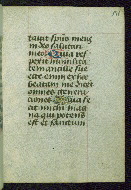 tavit spiritus meus
in deo salutari
meo. Quia res
pexit humilita
tem ancille sue
ecce enim ex hoc
beatam me dicet
omnes genera
ciones. Quia fe
cit michi mag
na qui potens
est et sanctum